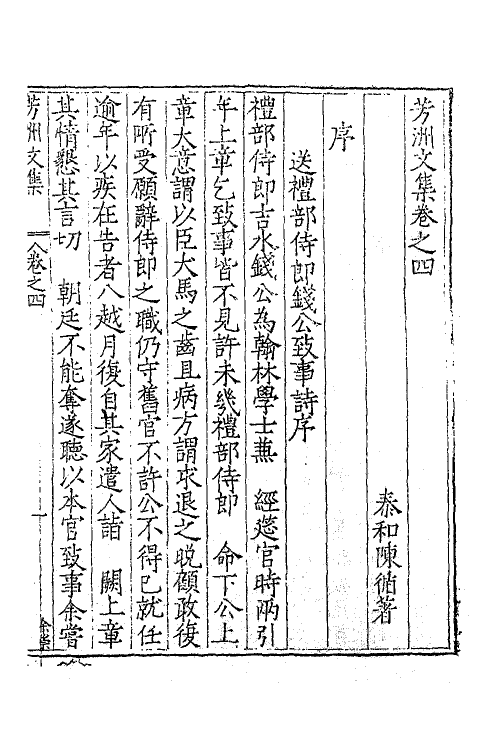 芳洲文集卷之四
泰和陳循著
序
送禮部侍郎錢公致事詩序
禮部侍郎吉水錢公為翰林學士兼　經筵官時兩引
年上章乞致事皆不見許未幾禮部侍郎　命下公上
章大意謂以臣犬馬之齒且病方謂求退之晚顧政復
有所受願辭侍郎之職仍守舊官不許公不得已就任
逾年以疾在告者八越月復自其家遣人詣　闕上章
其情懇其言切　朝廷不能奪遂聽以本官致事余嘗
芳州文集　卷之四　一